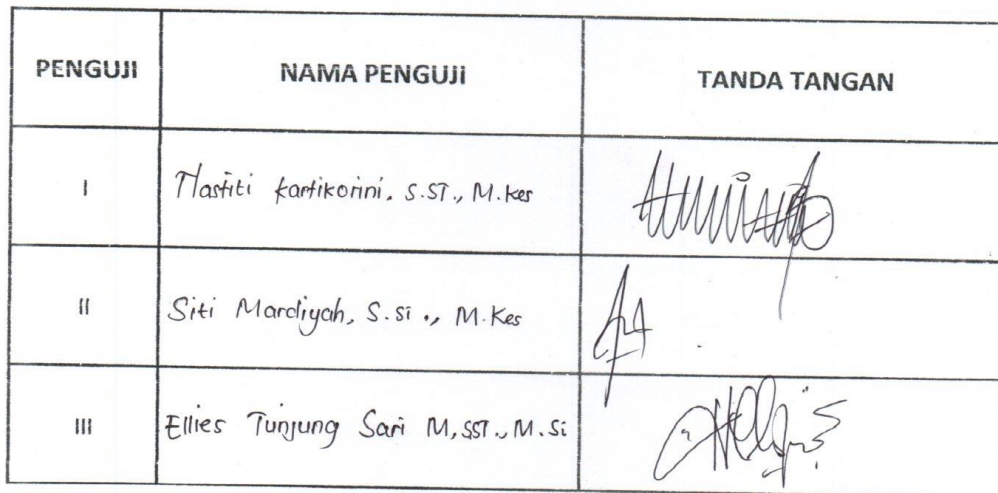 PENGUJI NAMA PENGUJI TANDA TANGAN
I Nastiti Kartikorini, S.ST., M.Kes
II Siti Mardiyah, S.Si ., M.Kes
III Ellies Tunjung Sari M, SST., M.Si